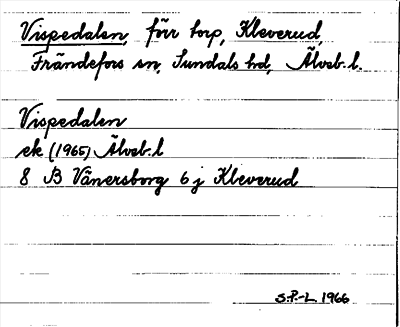 Vispedalen, förr torp, Kleverud,
Frändefors sn, Sundals hd, Älvsb. l.
Vispedalen
ek (1965) Älvsb. l
8 B Vänersborg 6 j Kleverud
S.P.-L. 1966